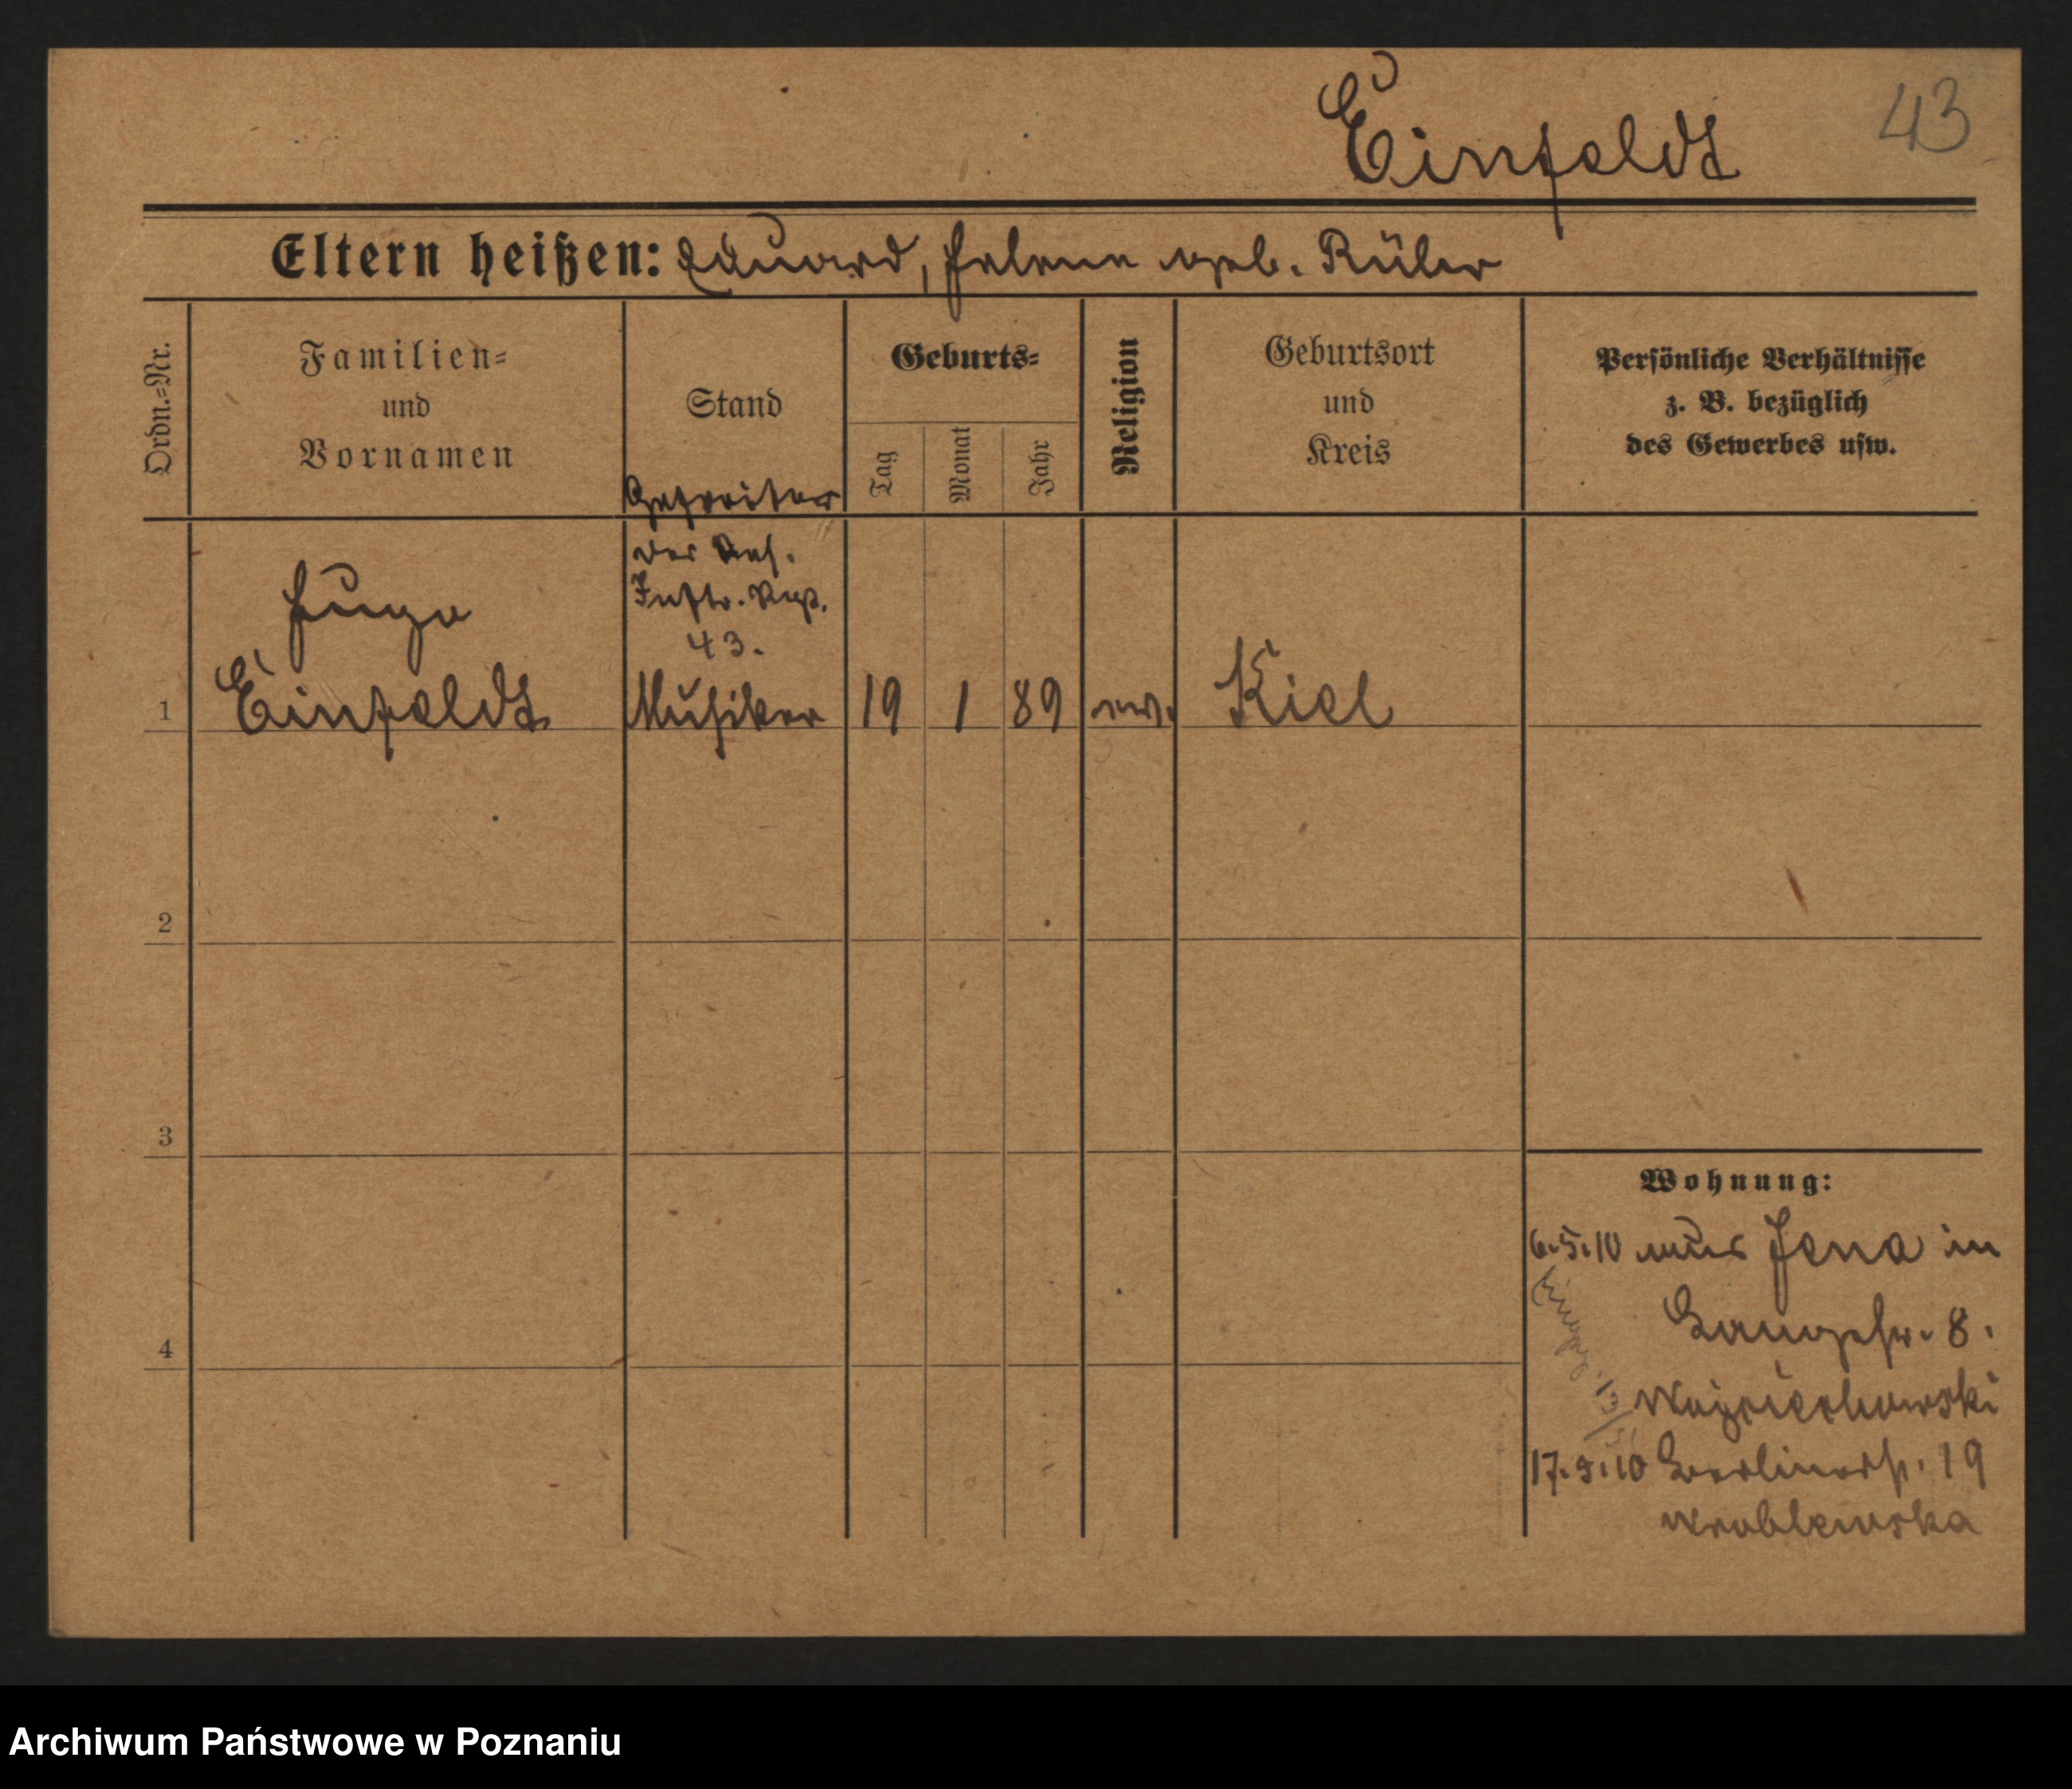 Einfeldt
43
Eltern heißen: Eduard, Helene geb. Rüler
Ordn.=Nr.
Familien=
und
Vornamen
Stand
Geburts=
Tag
Monat
Jahr
Religion
Geburtsort
und
Kreis
Persönliche Verhältnisse
z. B. bezüglich
des Gewerbes usw.
Gefreiter
der Res.
Inftr. Regt.
43.
Hugo
1 Einfeldt Musiker 19 1 89 ev. Kiel
2
3
4
Wohnung:
6.5.10 aus Jena in
8.
Wojciechowski
17.5.10 Berlinerstr. 19
Wroblewska
Archiwum Państwowe w Poznaniu